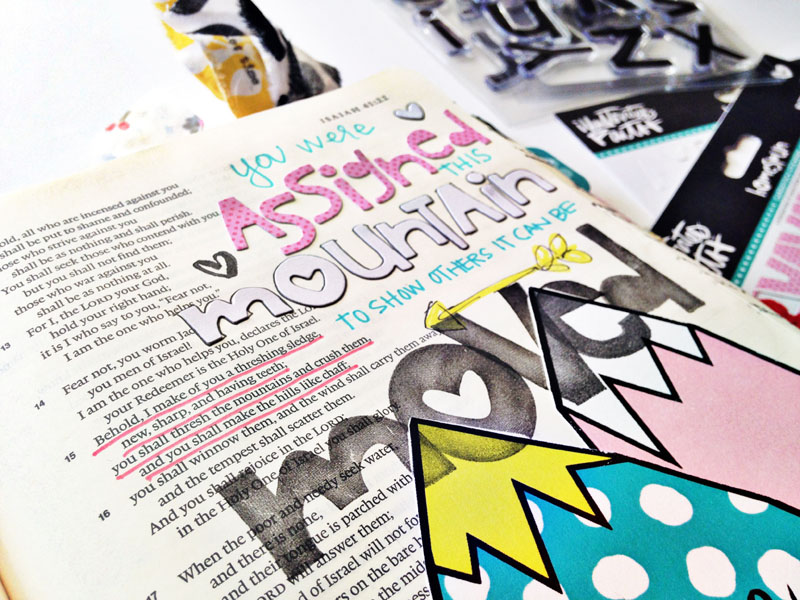 ISAIAH 41:22
you were
ASSigned
THIS
mountain
TO SHOW OTHERS IT CAN BE
moved
old, all who are incensed against you
shall be put to shame and confounded;
those who strive against you
shall be as nothing and shall perish.
You shall seek those who contend with you
but you shall not find them;
those who war against you
shall be as nothing at all.
13 For I, the LORD your God,
hold your right hand;
it is I who say to you, "Fear not,
I am the one who helps you."
14 Fear not, you worm
you men of Israel!
I am the one who helps you, declares the
your Redeemer is the Holy One of Israel.
15 Behold, I make of you a threshing sledge,
new, sharp, and having teeth;
you shall thresh the mountains and crush them,
and you shall make the hills like chaff;
16 you shall winnow them, and the wind shall carry them away
and the tempest shall scatter them.
And you shall rejoice in the LORD;
in the Holy One of Israel you shall glory.
17 When the poor and needy seek water
and there is none,
and their tongue is parched with
LORD will answer them;
of Israel will not
on the bare
the
i u
y N X